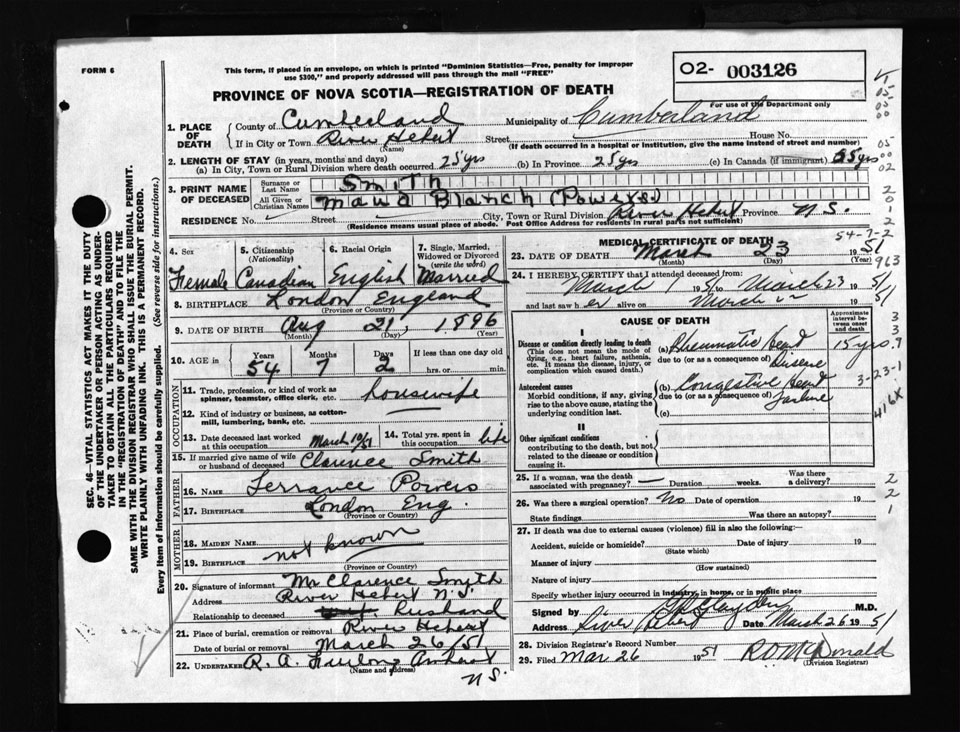 FORM 6
This form, if placed in an envelope, on which is printed "Dominion Statistics—Free, penalty for improper
use $300," and properly addressed will pass through the mail "FREE"
02- 003126
For use of the Department only
PROVINCE OF NOVA SCOTIA—REGISTRATION OF DEATH
1. PLACE OF DEATH County of Cumberland Municipality of Cumberland
If in City or Town River Hebert Street House No.
(Name) (If death occurred in a hospital or institution, give the name instead of street and number)
2. LENGTH OF STAY (in years, months and days)
(a) In City, Town or Rural Division where death occurred 25 yrs (b) In Province 25 yrs (c) In Canada (if immigrant) 25 yrs
3. PRINT NAME OF DECEASED Surname or Last Name Smith
All Given or Christian Names Maud Blanch (Powers)
RESIDENCE No. Street City, Town or Rural Division River Hebert Province N.S.
(Residence means usual place of abode. Post Office Address for residents in rural parts not sufficient)
SEC. 46—VITAL STATISTICS ACT MAKES IT THE DUTY
OF THE UNDERTAKER OR PERSON ACTING AS UNDER-
TAKER TO OBTAIN ALL THE PARTICULARS REQUIRED
IN THE "REGISTRATION OF DEATH" AND TO FILE THE
SAME WITH THE DIVISION REGISTRAR WHO SHALL ISSUE THE BURIAL PERMIT.
WRITE PLAINLY WITH UNFADING INK. THIS IS A PERMANENT RECORD.
Every item of information should be carefully supplied. (See reverse side for instructions.)
4. Sex 5. Citizenship (Nationality) 6. Racial Origin 7. Single, Married, Widowed or Divorced (write the word)
Female Canadian English Married
8. BIRTHPLACE London England
(Province or Country)
9. DATE OF BIRTH Aug 21, 1896
(Month) (Day) (Year)
10. AGE in Years Months Days If less than one day old
54 7 2 hrs. or min.
OCCUPATION
11. Trade, profession, or kind of work as
spinner, teamster, office clerk, etc. housewife
12. Kind of industry or business, as cotton-
mill, lumbering, bank, etc.
13. Date deceased last worked at this occupation March 10/51 14. Total yrs. spent in this occupation life
15. If married give name of wife or husband of deceased Clarence Smith
FATHER
16. NAME Terrance Powers
17. BIRTHPLACE London Eng.
(Province or Country)
MOTHER
18. MAIDEN NAME
not known
19. BIRTHPLACE
(Province or Country)
20. Signature of informant Mr Clarence Smith
Address River Hebert N.S.
Relationship to deceased Husband
21. Place of burial, cremation or removal River Hebert
Date of burial or removal March 26/51
22. UNDERTAKER R. A. Amherst
(Name and address) N.S.
54-7-2
MEDICAL CERTIFICATE OF DEATH
23. DATE OF DEATH March 23 1951
(Month) (Day) (Year)
24. I HEREBY CERTIFY that I attended deceased from:
March 1 1951 to March 23 1951
and last saw her alive on March 22 1951
CAUSE OF DEATH
Approximate interval between onset and death
I
Disease or condition directly leading to death (a) Rheumatic Heart 15 yrs.
(This does not mean the mode of dying, e.g., heart failure, asthenia, etc. It means the disease, injury, or complication which caused death.)
due to (or as a consequence of) Disease
Antecedent causes (b) Congestive Heart
Morbid conditions, if any, giving rise to the above cause, stating the underlying condition last.
due to (or as a consequence of) Failure
(c)
II
Other significant conditions
contributing to the death, but not related to the disease or condition causing it.
25. If a woman, was the death associated with pregnancy? — Duration weeks. Was there a delivery?
26. Was there a surgical operation? No Date of operation 19
State findings Was there an autopsy?
27. If death was due to external causes (violence) fill in also the following:—
Accident, suicide or homicide? Date of injury 19
(State which)
Manner of injury
(How sustained)
Nature of injury
Specify whether injury occurred in industry, in home, or in public place
Signed by M.D.
Address River Hebert Date March 26 1951
28. Division Registrar's Record Number
29. Filed Mar 26 1951 McDonald
(Division Registrar)
05
00
02
2
0
1
2
963
3
3
9
3-23-1
416X
2
2
1